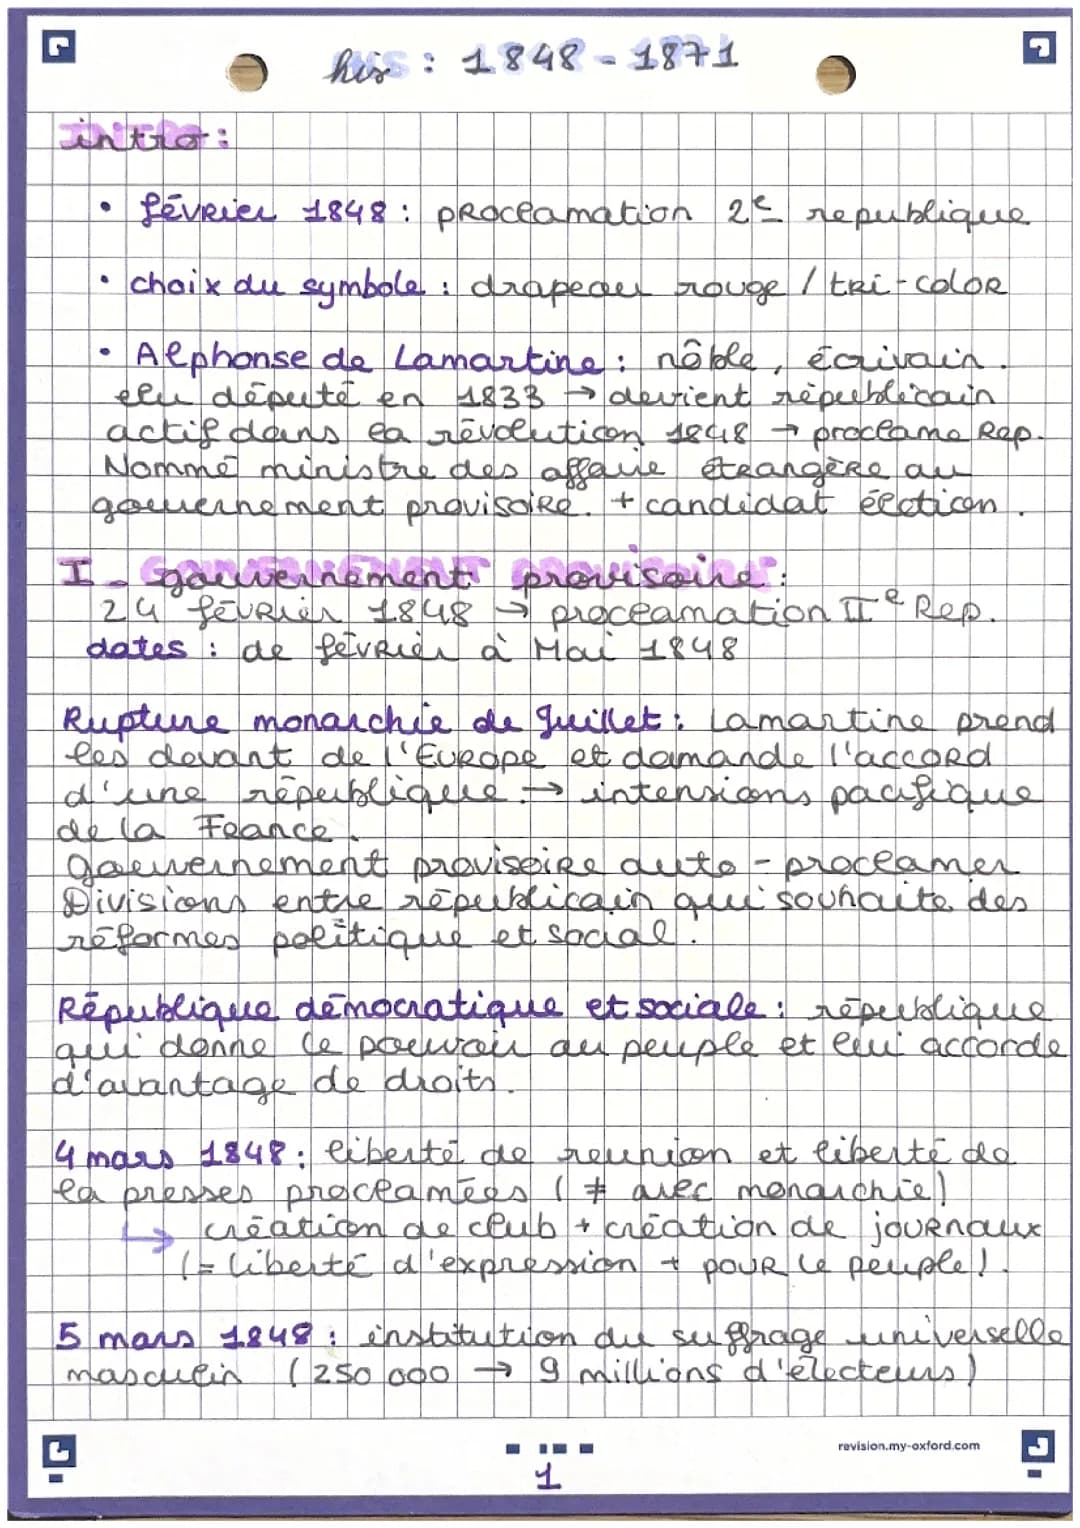 his : 1848 - 1871
intro :
• février 1848 : proclamation 2e republique
• choix du symbole : drapeau rouge / tri-color
• Alphonse de Lamartine : nôble, écrivain.
elu député en 1833 → devient républicain
actif dans la révolution 1848 → proclame Rep.
Nommé ministre des affaire étrangère au
gouvernement provisoire. + candidat éléction.
I - gouvernement provisoire :
24 février 1848 → proclamation IIe Rep.
dates : de février à Mai 1848
Rupture monarchie de Juillet : Lamartine prend
les devant de l'Europe et demande l'accord
d'une république. → intensions pacifique
de la France.
gouvernement provisoire auto-proclamer
Divisions entre républicain qui souhaite des
réformes politique et social.
République démocratique et sociale : république
qui donne le pouvoir au peuple et lui accorde
d'avantage de droits.
4 mars 1848 : liberté de reunion et liberté de
la presses proclamées ( ≠ avec monarchie)
↳ création de club + création de journaux
(= liberté d'expression + pour le peuple).
5 mars 1848 : institution du suffrage universelle
masculin (250 000 → 9 millions d'électeurs)
revision.my-oxford.com
1